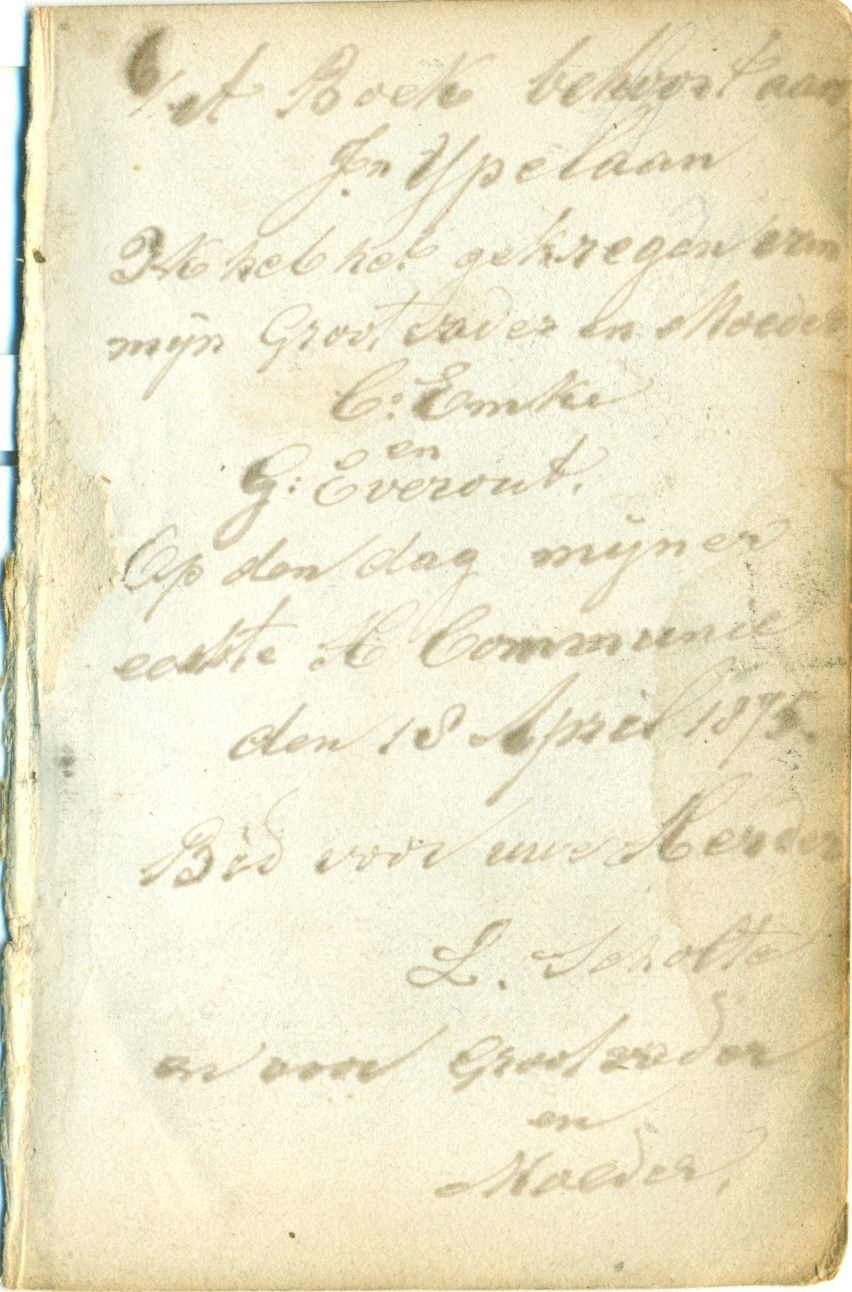 Het Boek behoort aan
Jn Ypelaan
Ik heb het gekregen van
mijn Groot vader en Moeder
C: Emke
en
G: Everout.
Op den dag mijner
eerste H Communie
den 18 April 1875.
Bid voor uwe Herder
L. Scholte
en voor Grootvader
en
Moeder.